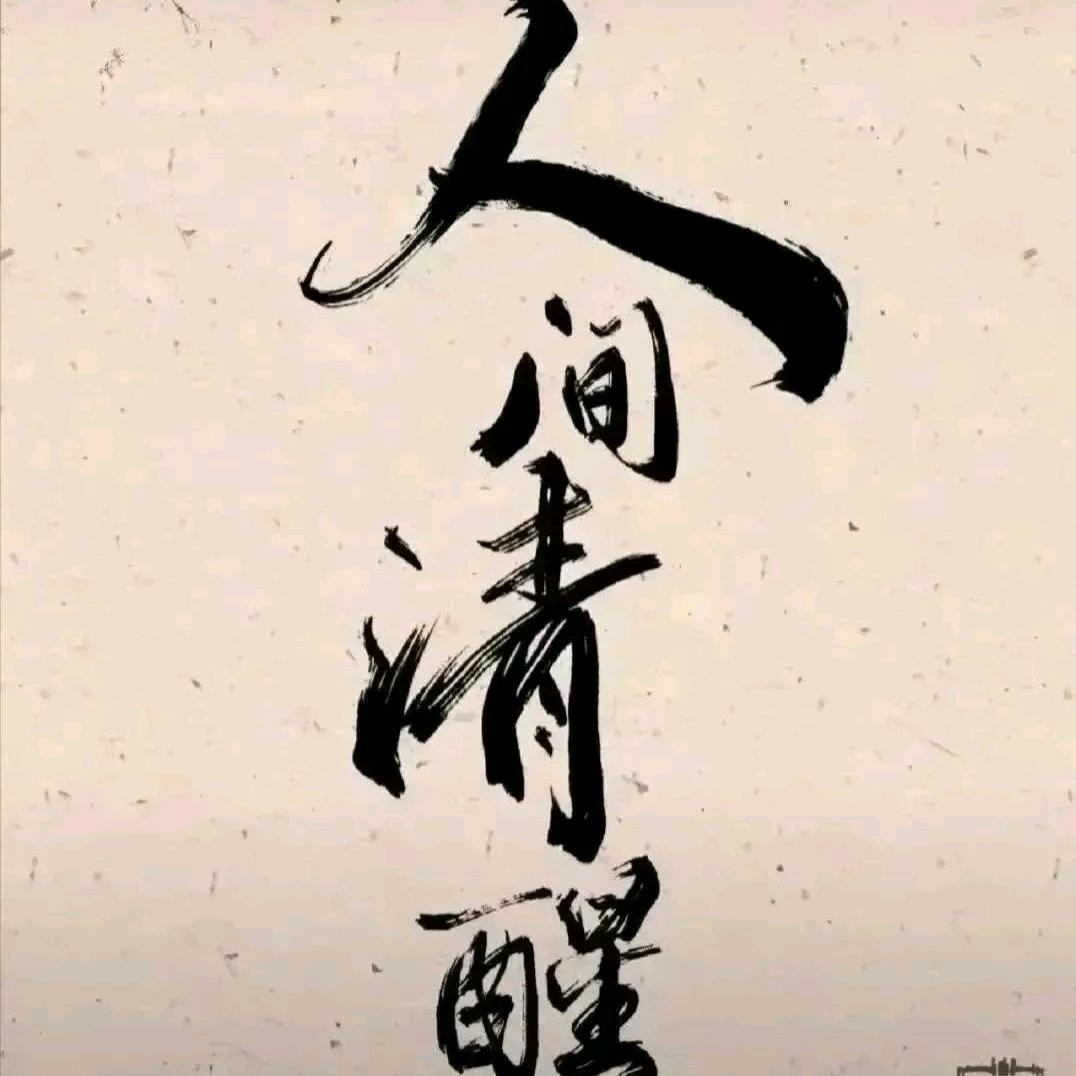 人间清醒